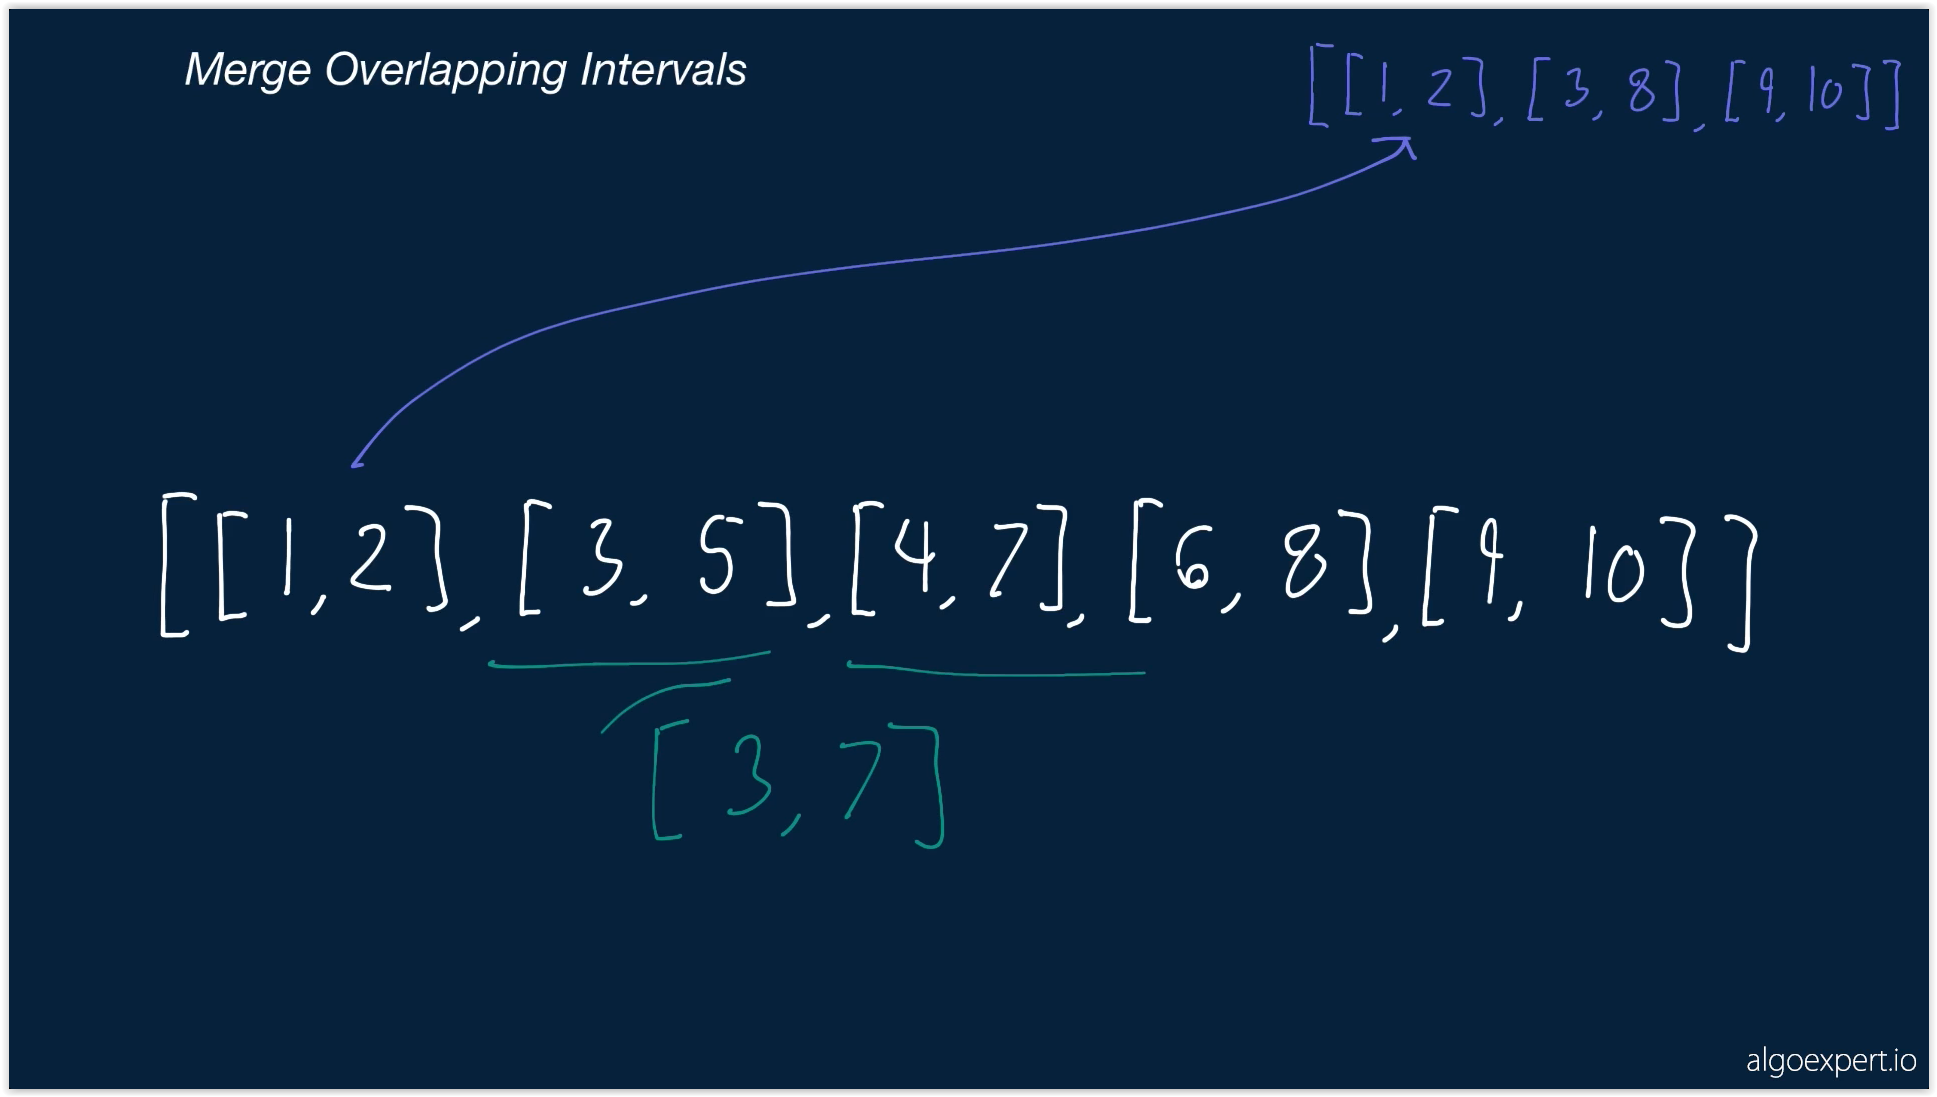 Merge Overlapping Intervals
[[1, 2], [3, 8], [9, 10]]
[[1,2], [3, 5], [4, 7], [6, 8], [9, 10]]
[3, 7]
algoexpert.io